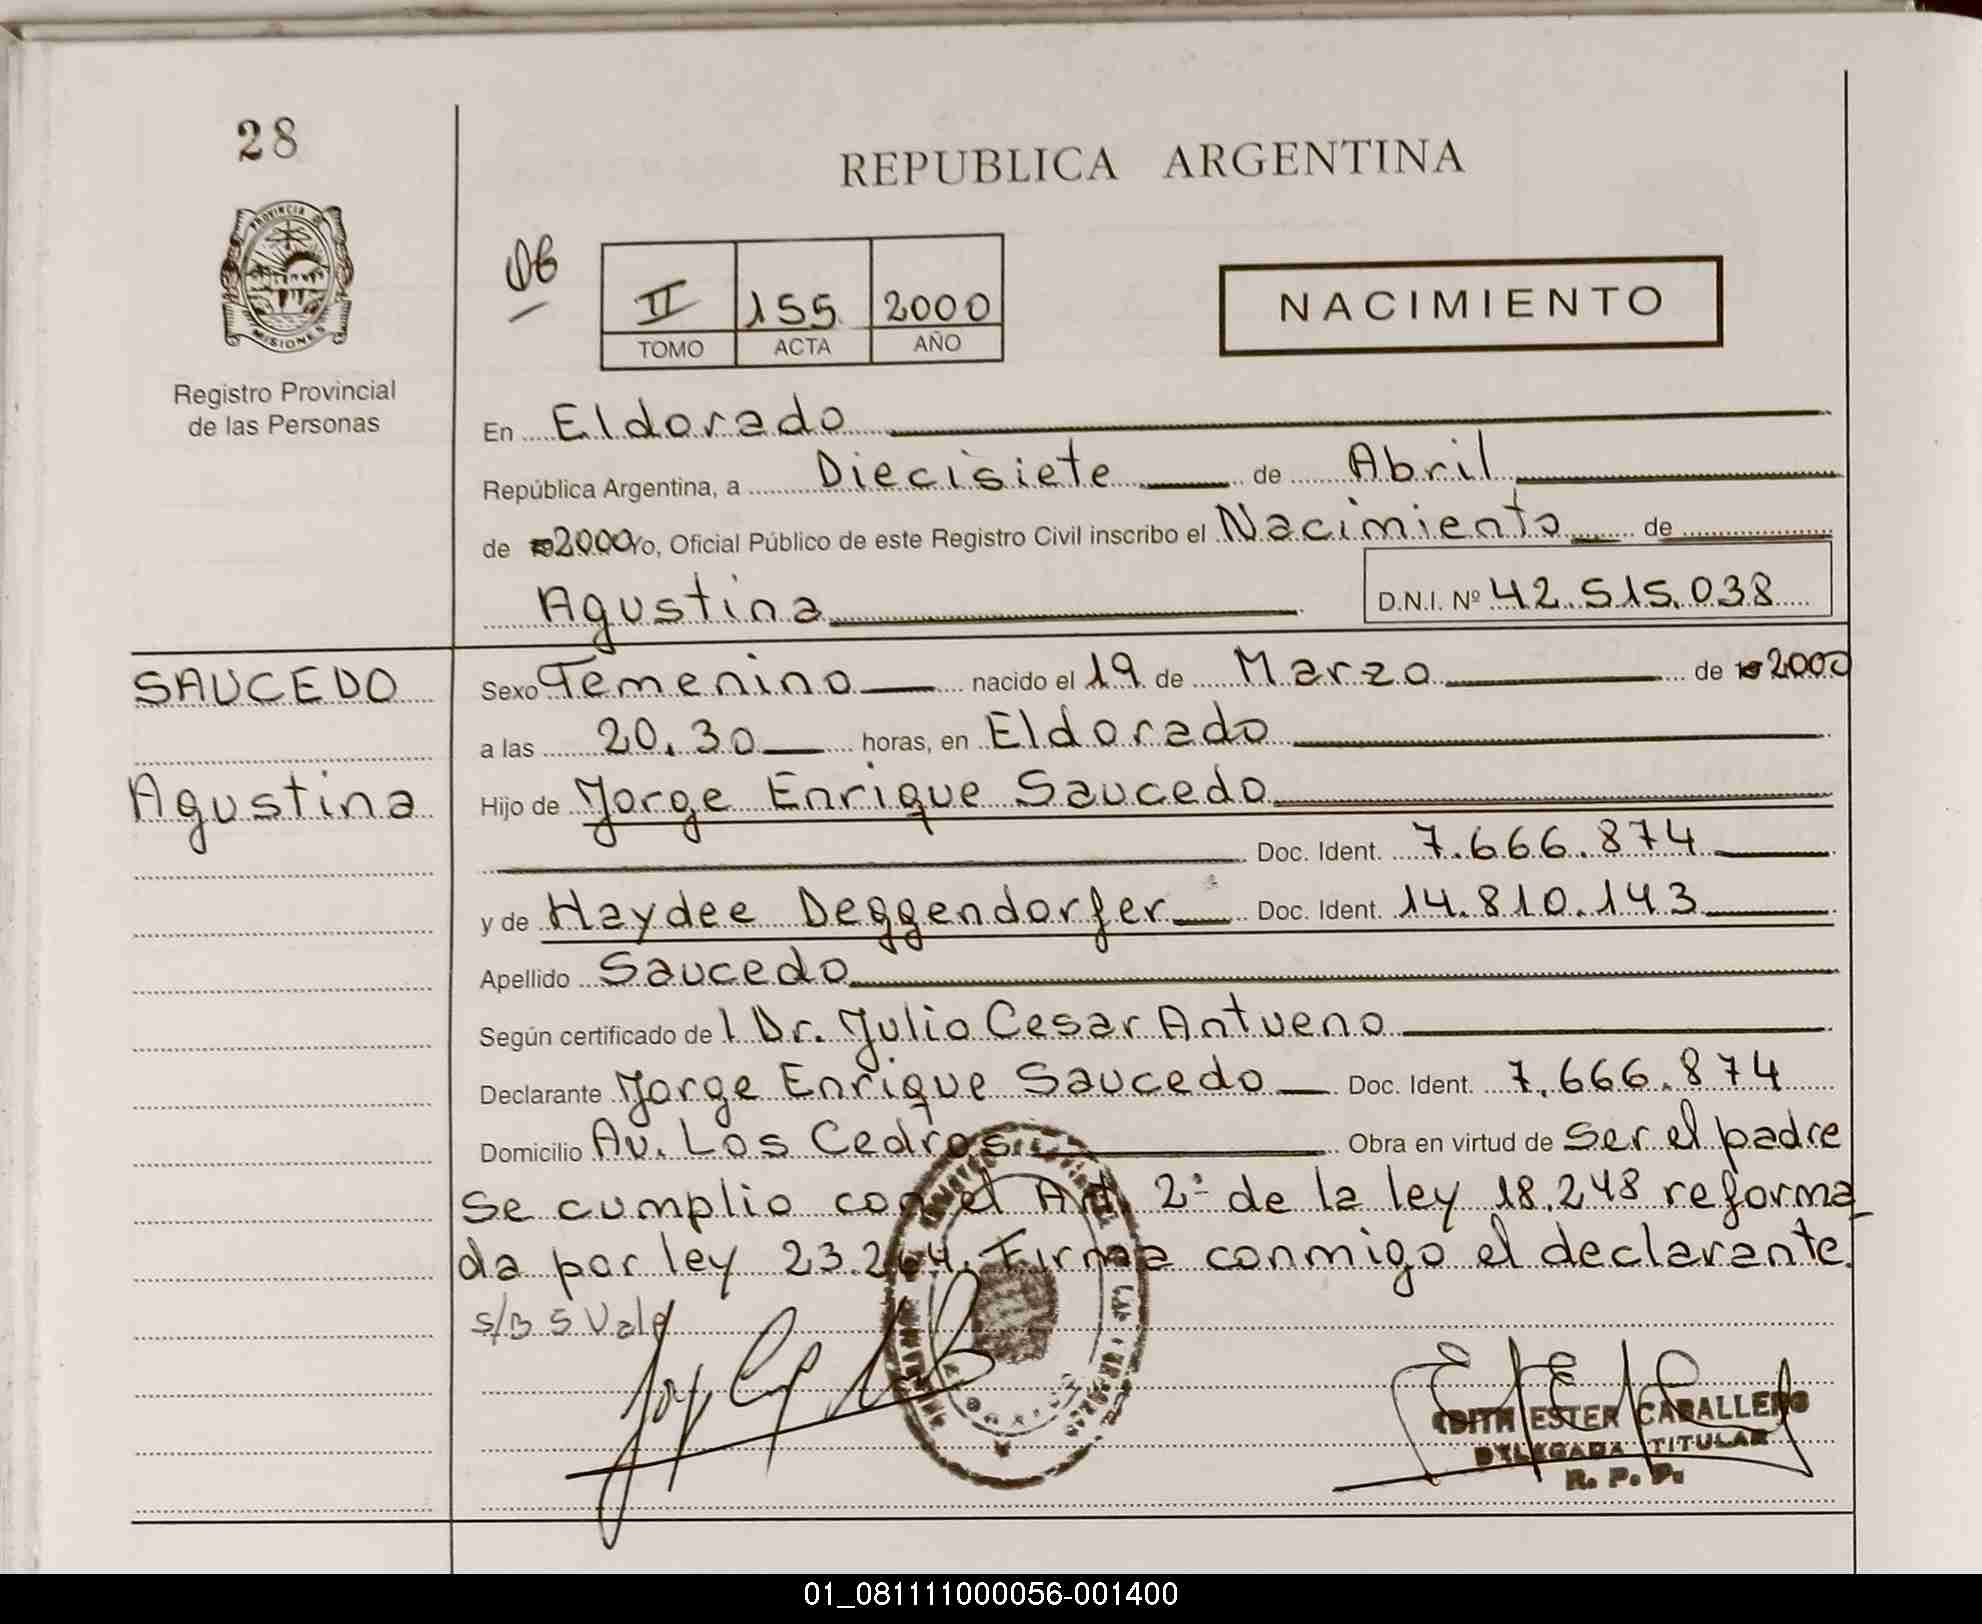 28
REPUBLICA ARGENTINA
PROVINCIA DE
MISIONES
Registro Provincial
de las Personas
II 155 2000
TOMO ACTA AÑO
NACIMIENTO
En Eldorado
República Argentina, a Diecisiete de Abril
de 2000 Yo, Oficial Público de este Registro Civil inscribo el Nacimiento de
Agustina D.N.I. Nº 42.515.038
SAUCEDO
Agustina
Sexo Femenino nacido el 19 de Marzo de 2000
a las 20.30 horas, en Eldorado
Hijo de Jorge Enrique Saucedo
Doc. Ident. 7.666.874
y de Haydee Deggendorfer Doc. Ident. 14.810.143
Apellido Saucedo
Según certificado de l Dr. Julio Cesar Antueno
Declarante Jorge Enrique Saucedo Doc. Ident. 7.666.874
Domicilio Av. Los Cedros Obra en virtud de ser el padre
Se cumplio con el Art. 2º de la ley 18.248 reforma_
da por ley 23.264. Firma conmigo el declarante.
S/B 5 Vale
EDITH ESTER CABALLERO
DELEGADA TITULAR
R. P. P.
01_081111000056-001400